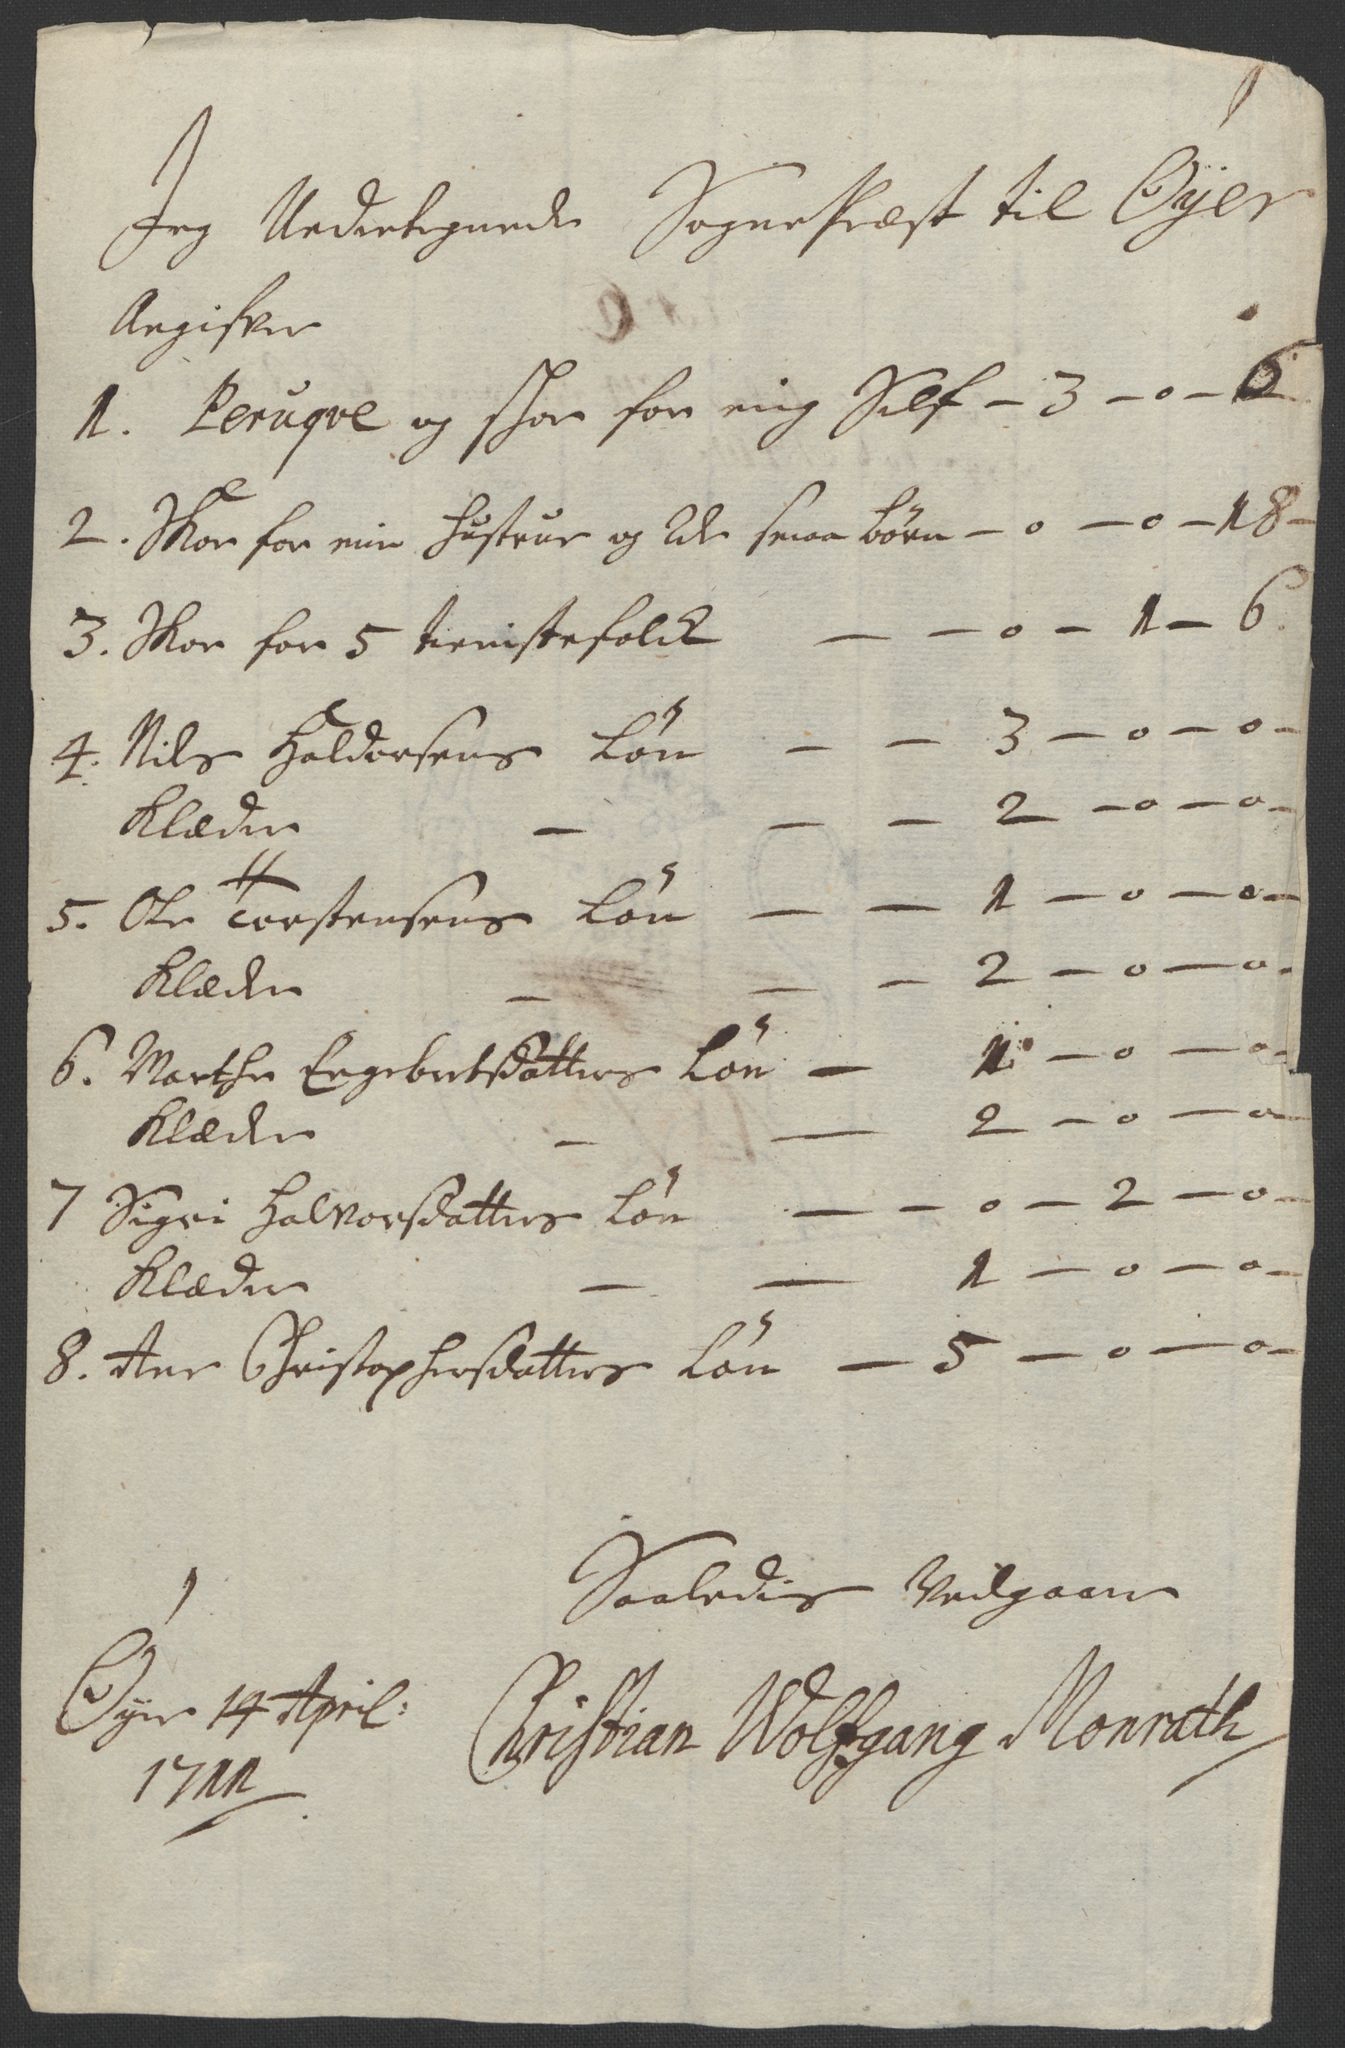 Jeg Undertegnede SognePræst til Øÿer
Angifver
1. Peruqve og skoe for mig Self – 3 – 0 – 6
2. Skoe for min Hustrue og 2de smaa börn – 0 – 0 – 18 –
3. Skoe for 5 tienistefolck – – 0 – 1 – 6.
4. Nils Haldorsens Lön – – 3 – 0 – 0 –
Klæder – – – 2 – 0 – 0 –
5. Ole Torstensens Lön – – 1 – 0 – 0 –
Klæder – – – 2 – 0 – 0 –
6. Marthe Engebretsdatters Lön – 1 – 0 – 0 –
Klæder – – 2 – 0 – 0 –
7 Sigri Halvorsdatters Lön – – 0 – 2 – 0 –
Klæder – – 1 – 0 – 0 –
8. Ane Christophersdatters Lön – 5 – 0 – 0 –
Saaledis Vedgaaer
Øÿer 14 April:
1711
Christian Wolffgang Monrath